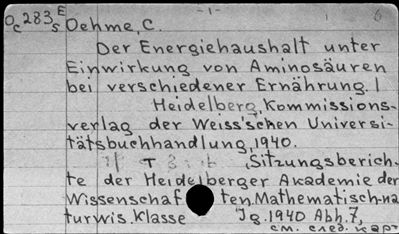 -1-
Oc283 E/s Oehme, C.
Der Energiehaushalt unter
Einwirkung von Aminosäuren
bei verschiedener Ernährung. I
Heidelberg, Kommissions-
verlag der Weiss'schen Universi-
tätsbuchhandlung, 1940.
Sitzungsberich-
te der Heidelberger Akademie der
Wissenschaf ten. Mathematisch-na
turwis. Klasse Jg. 1940 Abh. 7,
см. след. карт